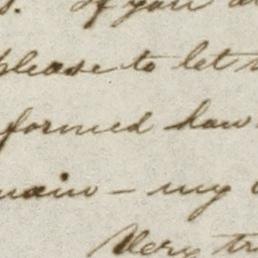 If you
please to let
formed how
main – my
Very tr